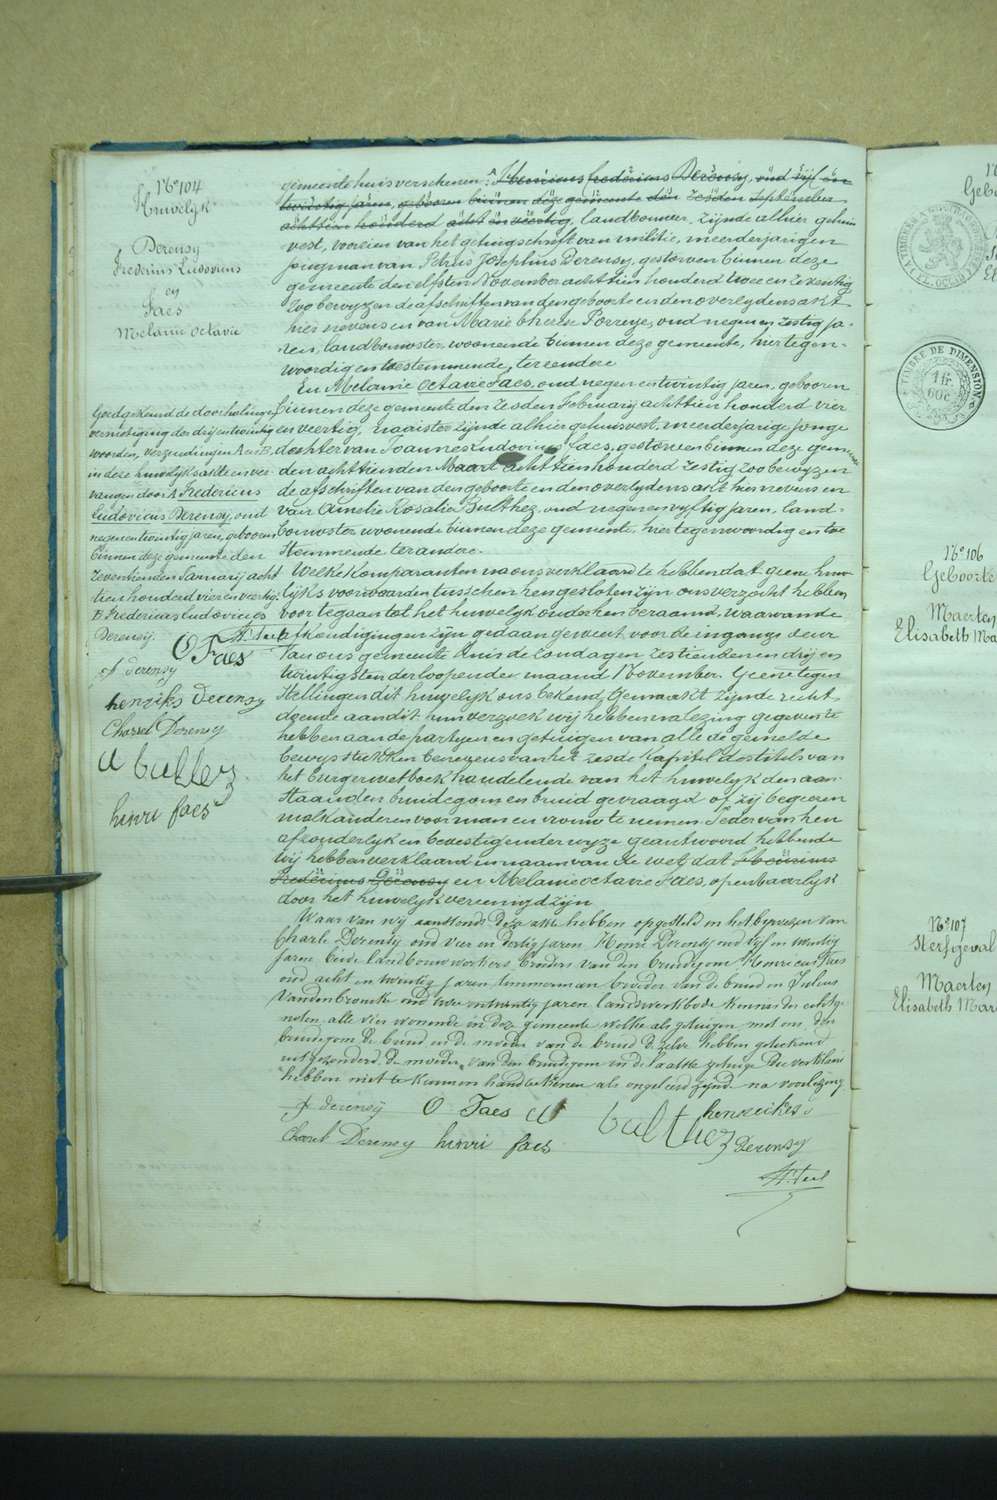 N° 104
Huwelijk
Derensy
Frederius Ludovicus
en
Faes
Melanie Octavie
gemeente huis verschenen: A Henricus frederius Derensy, oud vijf en
twintig jaren, geboren binnen deze gemeente den zesden September
achttien honderd acht en veertig, landbouwer, zijnde alhier gehuis
vest, voorzien van het getuigschrift van militie, meerderjarigen
jongman van Petrus Josephus Derensy, gestorven binnen deze
gemeente den elfsten November achttien honderd twee en zeventig
zoo bewyzen de afschriften van den geboorte en den overlydens akt
hier nevens en van Marie therese Porreye, oud negen en zestig ja-
ren, landbouwster, woonende binnen deze gemeente, hier tegen-
woordig en toestemmende, ter eendere
En Melanie Octavie Faes, oud negen en twintig jaren, geboren
binnen deze gemeente den zesden Februarij achttien honderd vier
en veertig, naaister zijnde alhier gehuisvest, meerderjarige jonge
dochter van Joannes Ludovicus Faes, gestorven binnen deze gemeente
den achttienden Maart achttien honderd zestig zoo bewyzen
de afschriften van den geboorte en den overlydens akt hier nevens en
van Amelie Rosalie Bulthez, oud negen en vyftig jaren, land-
bouwster woonende binnen deze gemeente, hier tegenwoordig en toe
stemmende ter andere.
Welke komparanten na ons verklaard te hebben dat geene huwe-
lijks voorwaarden tusschen hen gesloten zijn ons verzocht hebben
voor tegaan tot het huwelijk onder hen beraamd, waarvan de
afkondigingen zijn gedaan geweest voor de ingangs deur
van ons gemeente huis de zondagen zestienden en drij en
twintigsten der loopender maand November. Geene tegen
stellingen dit huwelijk ons bekend gemaakt zijnde recht
doende aan dit hun verzoek wij hebben na lezing gegeven te
hebben aan de partyen en getuigen van alle de gemelde
bewysstukken benevens van het zesde Kapittel des titels van
het burgerwetboek handelende van het huwelijk den aan
staanden bruidegom en bruid gevraagd of zij begeeren
malkanderen voor man en vrouw te nemen. Ieder van hen
afzonderlyk en bevestigender wyze geantwoord hebbende
wij hebben verklaard in naam van de wet, dat B Henricus
Frederius Derensy en Melanie octavie Faes, openbaarlijk
door het huwelyk vereenigd zijn
Waar van wij aanstonds deze akte hebben opgesteld in het bywezen van
Charle Derensy oud vier en dertig jaren Henri Derensy oud vijf en twintig
jaren beide landbouwwerkers broeders van den bruidegom Henricus Faes
oud acht en twintig jaren timmerman broeder van de bruid en Julius
Vandenbroucke oud twee en twintig jaren landswerkbode kennis der echtge-
noten alle vier wonende in deze gemeente welke als getuigen met ons den
bruidegom de bruid en de moeder van de bruid deze hebben geteekend
uitgezonderd de moeder van den bruidegom en de laatste getuige die verklaard
hebben niet te kunnen handteekenen als ongeleerd zijnde na voorlezing
f derensy O Faes A bulthez henderikes
Charel Derensy henri faes derensy
Goedgekeurd de doorhaling
vernietiging der drij en twintig
woorden, verzendingen A en B
in deze huwelyks akte en ver
vangen door A Fredericus
Ludovicus Derensy, oud
negen en twintig jaren, geboren
binnen deze gemeente den
zeventienden Januarij acht
tien honderd vier en veertig.
B Fredericus Ludovicus
Derensy.
O Faes
f derensy
henriks Derensy
Charel Derensy
A bultez
henri faes
TIMBRE DE DIMENSION
1 fr.
60 c.
N° 106
Geboorte
Maertey
Elisabeth Ma
N° 107
Sterfgeval
Maertey
Elisabeth Mar